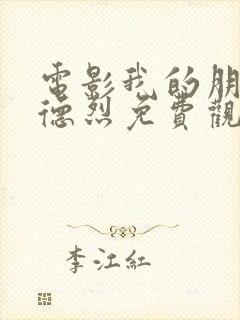 電影我的朋
德烈免費觀
李江紅